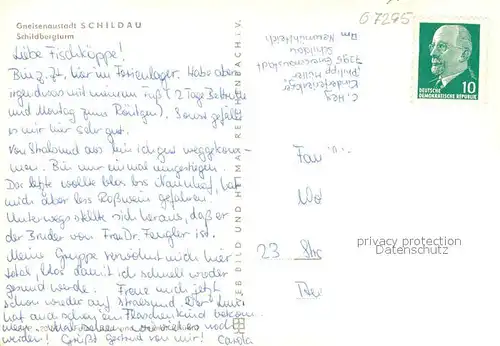 Gneisenaustadt SCHILDAU
Schildbergturm
07295
Liebe Fischköppe!
Bin z. Zt. hier im Ferienlager. Habe aber
irgendwas mit meinem Fuß (2 Tage Bettruhe
und Montag zum Röntgen). Sonst gefällt
es mir hier sehr gut.
Von Stralsund aus bin ich gut weggekom-
men. Bin nur einmal umgestiegen.
Der letzte wollte blos bis Naunhof, hat
mich aber bis Roßwein gefahren.
Unterwegs stellte sich heraus, daß er
der Bruder von Frau Dr. Fengler ist.
Meine Gruppe verwöhnt mich hier
total, blos damit ich schnell wieder
gesund werde. Freue mich jetzt
schon wieder auf Stralsund.
hat auch schon ein Flaschenkind bekom
werden! Grüßt Gestrud von mir! Carola
VEB BILD UND HEIMAT REICHENBACH i. V.
C. Hey
Kinderferienlager
"Philipp Müller"
7295 Gneisenaustadt
Schildau
Am Neumühlteich
DEUTSCHE
DEMOKRATISCHE REPUBLIK
10
Fam
23 Str
privacy protection
www.ansichtskartenversand.com